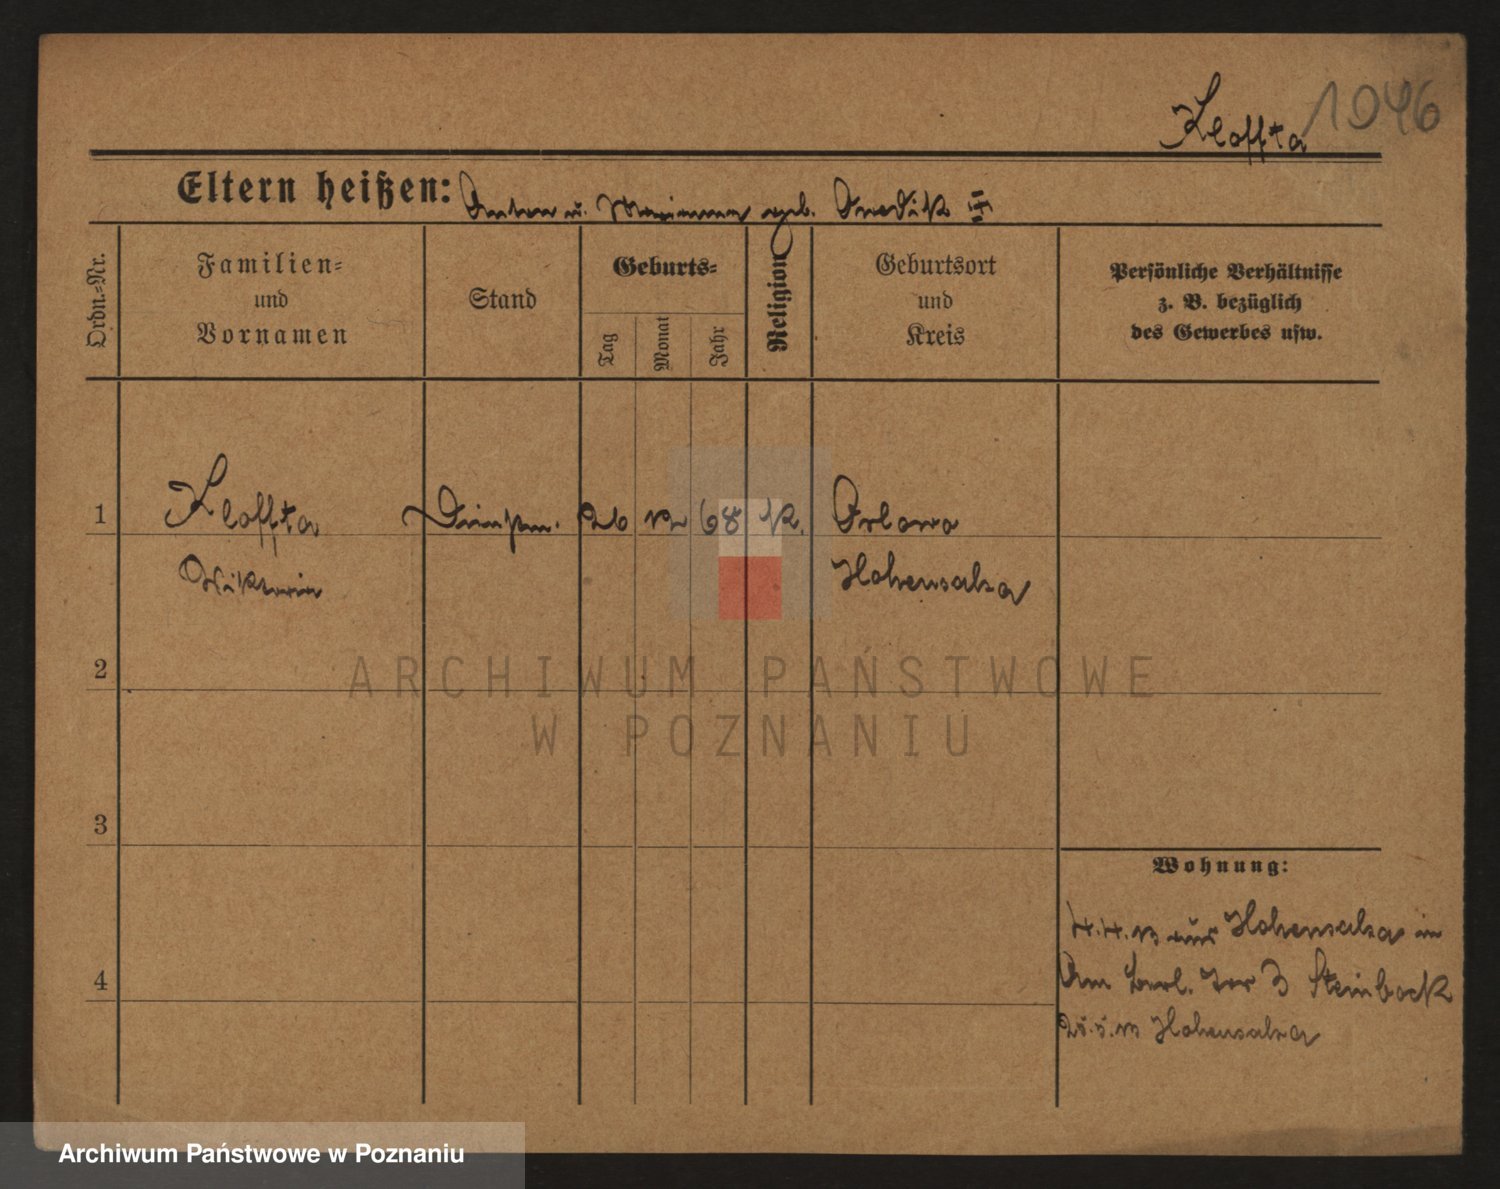 1046
Kloffta
Eltern heißen: Anton u. Marianna geb.
Ordn.-Nr.
Familien-
und
Vornamen
Stand
Geburts-
Tag
Monat
Jahr
Religion
Geburtsort
und
Kreis
Persönliche Verhältnisse
z. B. bezüglich
des Gewerbes usw.
1 Kloffta 26 12 68 K. Orlowo
Hohensalza
2
3
4
Wohnung:
4.4.13 aus Hohensalza in
Am Berl. Tor 3 Steinbock
25.5.13 Hohensalza
ARCHIWUM PAŃSTWOWE
W POZNANIU
Archiwum Państwowe w Poznaniu